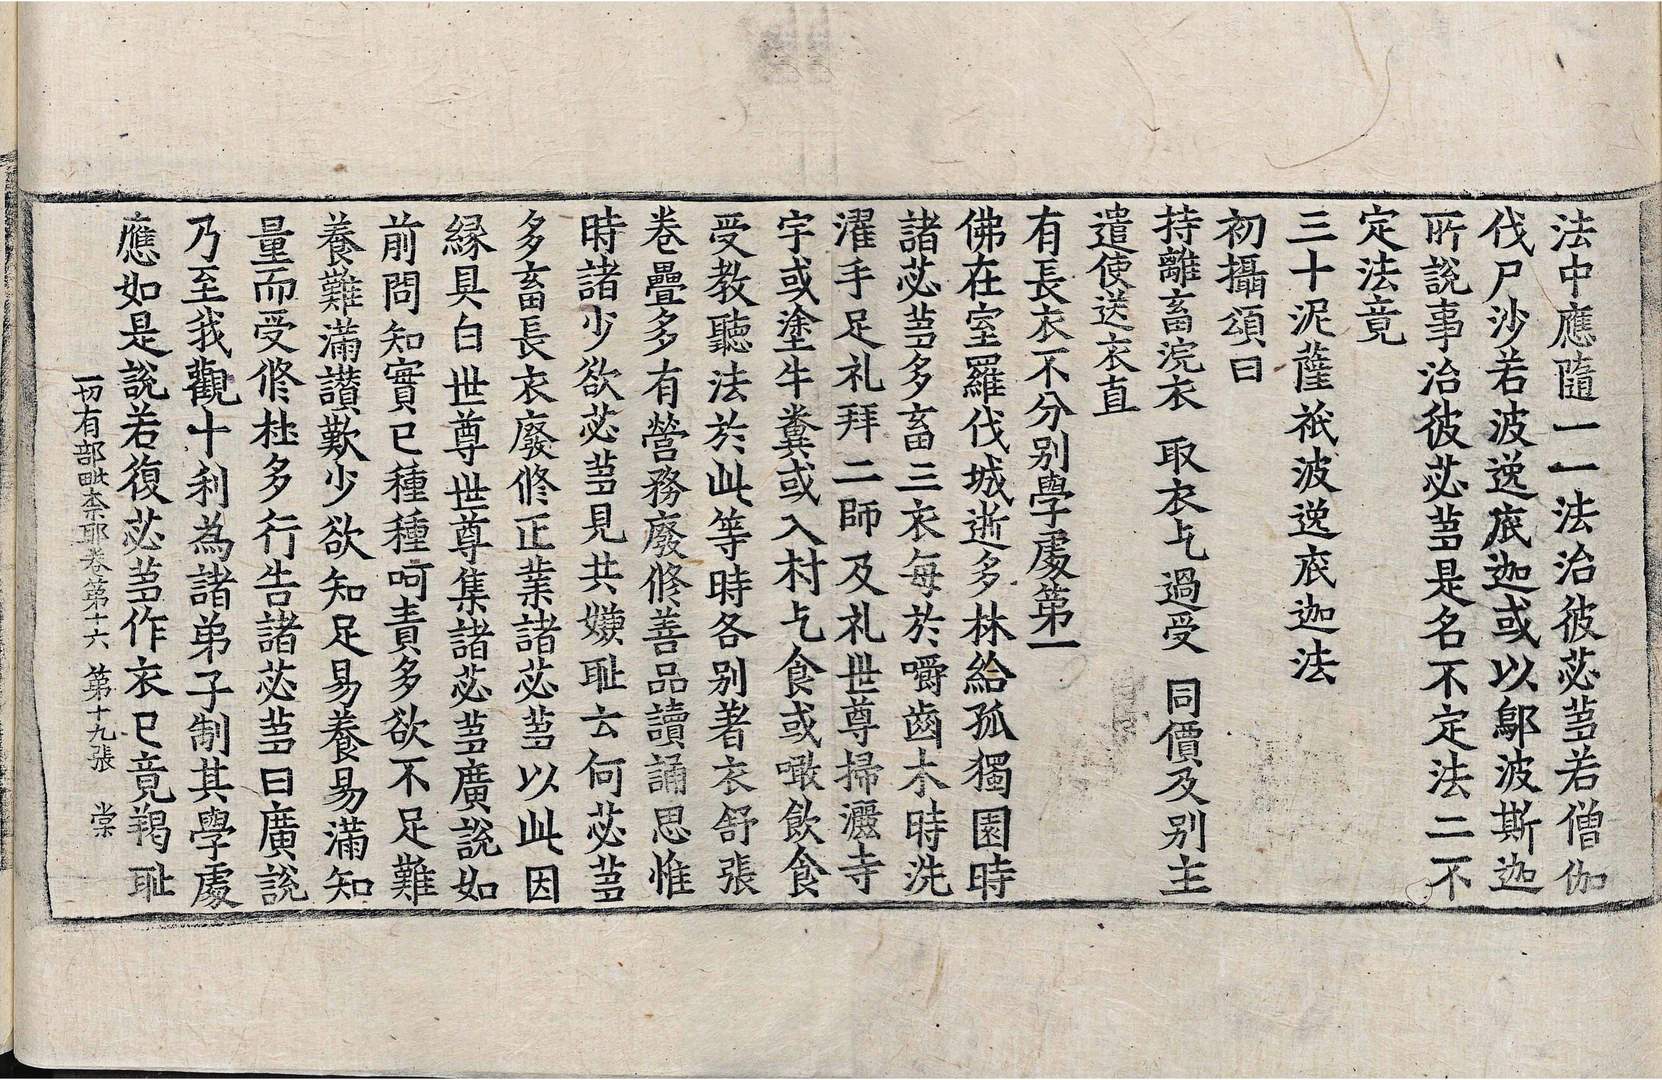 法中應隨一一法治彼苾芻若僧伽
伐尸沙若波逸底迦或以鄔波斯迦
所說事治彼苾芻是名不定法二不
定法竟
三十泥薩祇波逸底迦法
初攝頌曰
持離畜浣衣 取衣乞過受 同價及別主
遣使送衣直
有長衣不分別學處第一
佛在室羅伐城逝多林給孤獨園時
諸苾芻多畜三衣每於嚼齒木時洗
濯手足礼拜二師及礼世尊掃灑寺
宇或塗牛糞或入村乞食或噉飲食
受教聽法於此等時各別著衣舒張
卷疊多有營務廢修善品讀誦思惟
時諸少欲苾芻見共嫌恥云何苾芻
多畜長衣廢修正業諸苾芻以此因
緣具白世尊世尊集諸苾芻廣說如
前問知實已種種呵責多欲不足難
養難滿讚歎少欲知足易養易滿知
量而受修杜多行告諸苾芻曰廣說
乃至我觀十利為諸弟子制其學處
應如是說若復苾芻作衣已竟羯恥
一切有部毗奈耶卷第十六 第十九張 棠